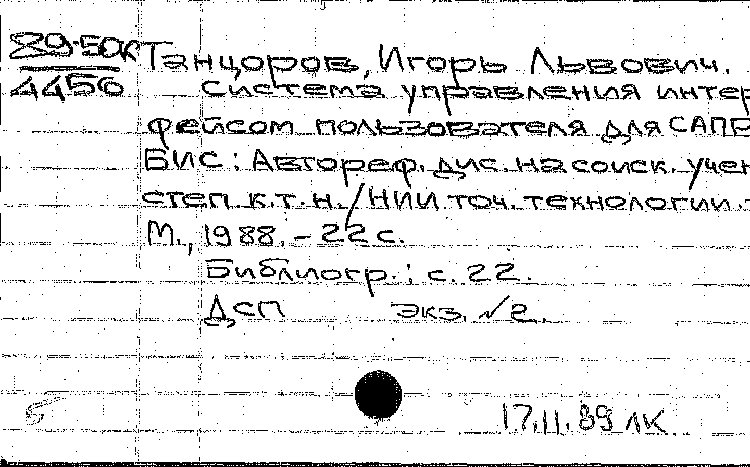 89-50к
4456
Танцоров, Игорь Львович.
Система управления интер
фейсом пользователя для САПР
БИС: Автореф. дис. на соиск. учен
степ к.т.н./НИИ точ. технологии.-
М., 1988.-22 с.
Библиогр.: с. 22.
ДСП экз. №2.
17.11.89 лк